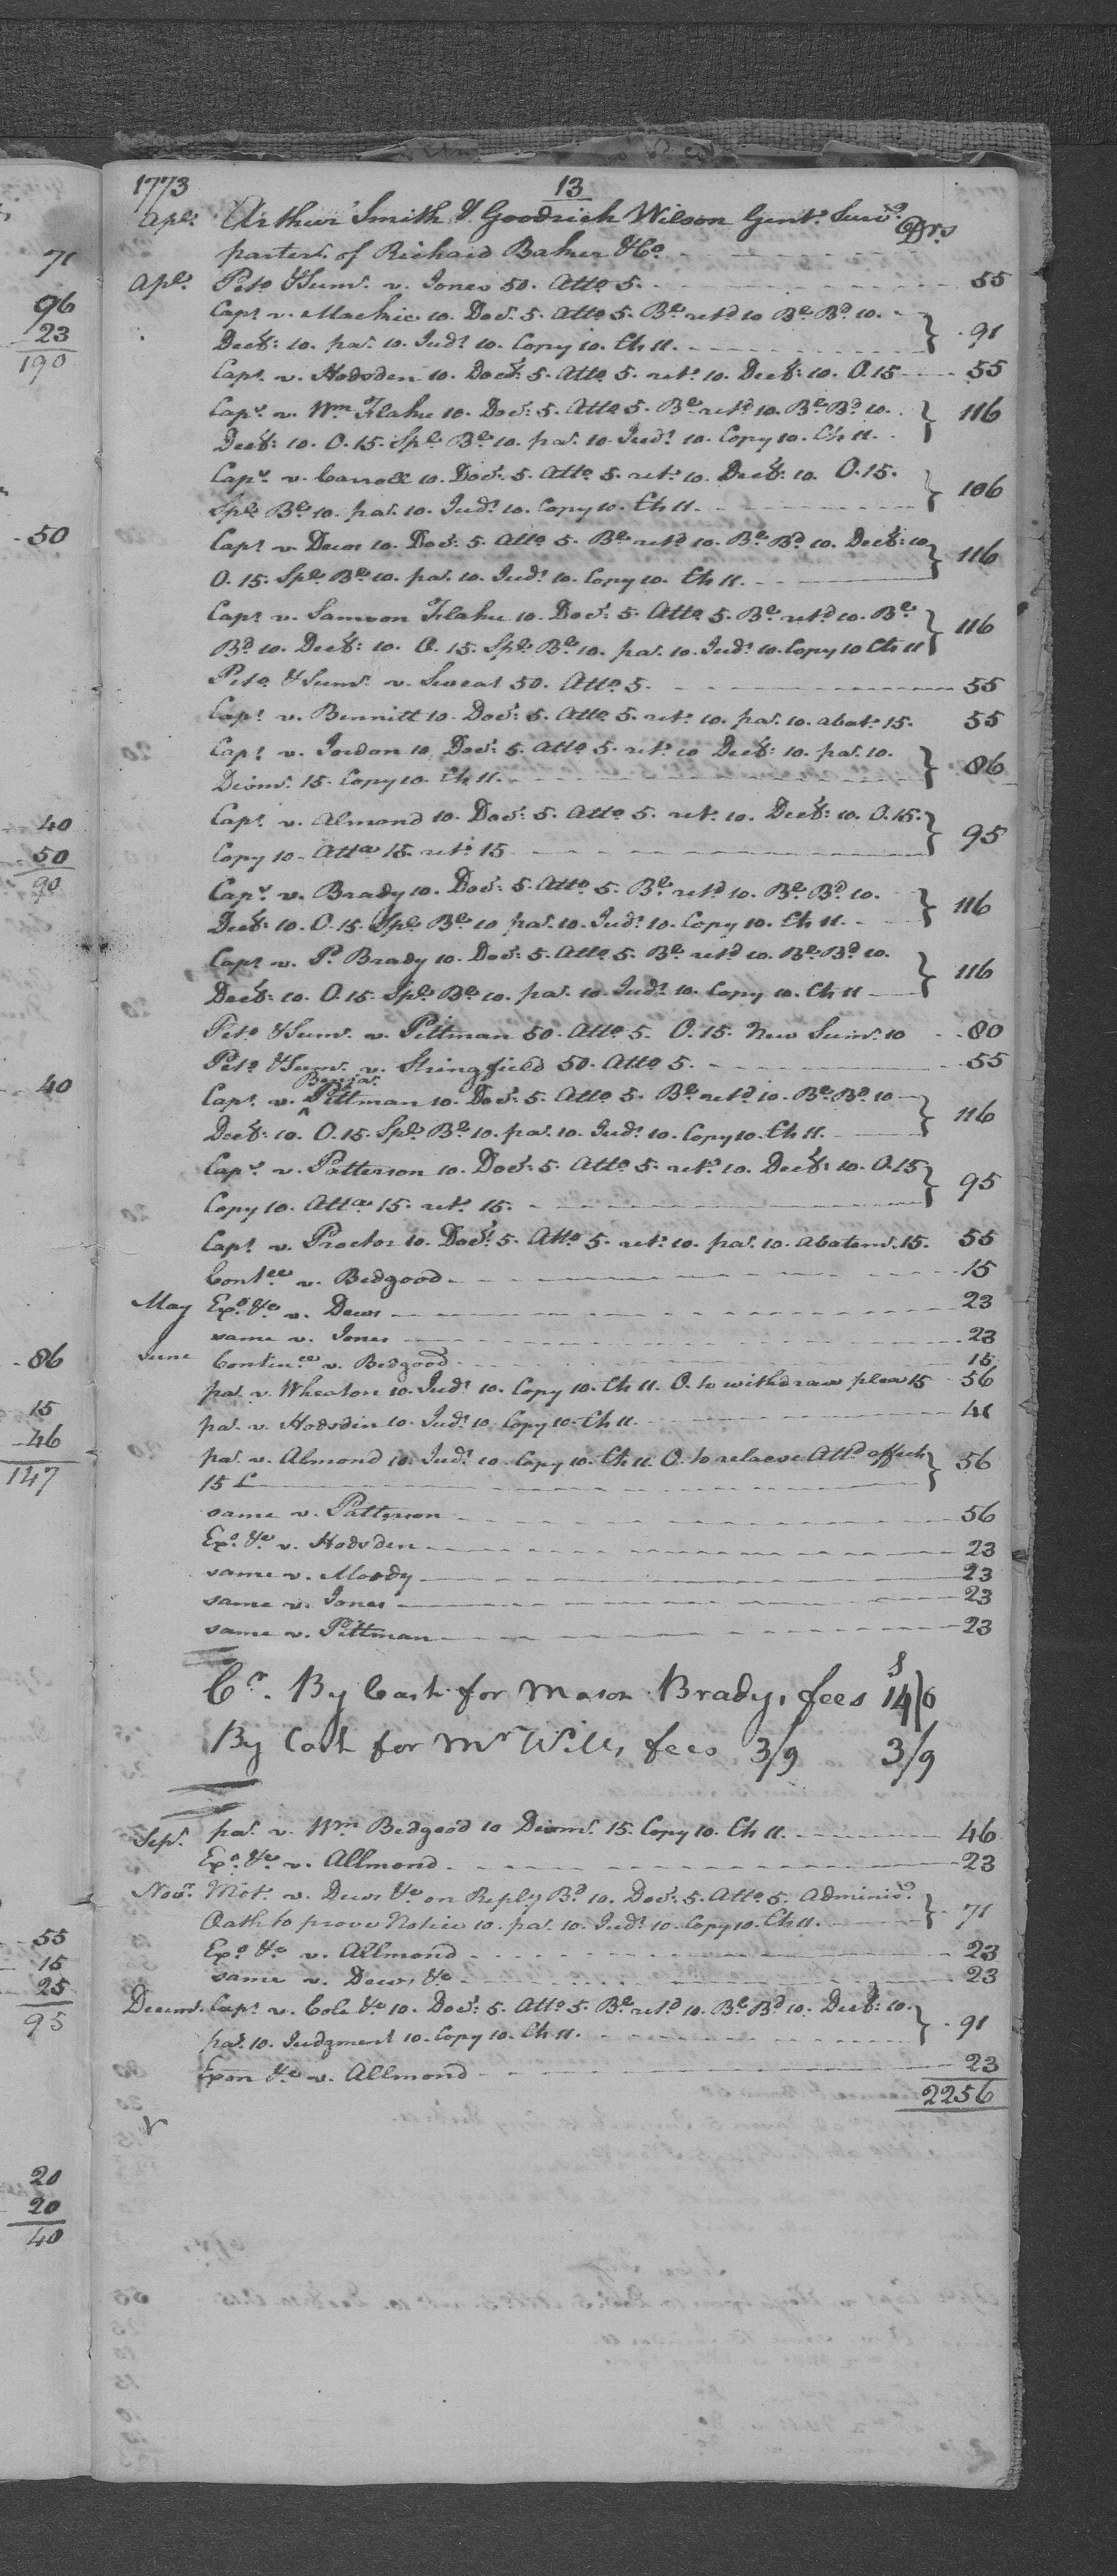 71
96
23
190
50
40
50
90
40
86
15
46
147
55
15
25
95
20
20
40
1773
13
Apl. Arthur Smith & Goodrich Wilson Gent. Surv.
parters. of Richard Baker &Co. Drs
Apl. Peto. &Sums. v. Jones 50. Atto 5. 55
Caps. v. Mackie 10. Doct. 5. Atto 5. Bl. retd 10 Bl. Bd 10.
Decl: 10. pas. 10. Judt. 10. Copy 10. Ch 11. 91
Caps. v. Hodsden 10. Doct: 5. Atto 5. ret. 10. Decl: 10. O. 15 55
Caps. v. Wm. Flake 10. Doct: 5. Atto 5. Bl. retd. 10. Bl. Bd. 10.
Decl: 10. O. 15. Spl. Bl. 10. pas. 10. Judt. 10. Copy 10. Ch 11. 116
Caps. v. Carroll 10. Doct: 5. Atto 5. ret. 10. Decl: 10. O. 15.
Spl. Bl. 10. pas. 10. Judt. 10. Copy 10. Ch 11. 106
Caps. v. Dews 10. Doct: 5. Atto 5. Bl. retd 10. Bl. Bd 10. Decl: 10
O. 15. Spl. Bl. 10. pas. 10. Judt. 10. Copy 10. Ch 11. 116
Caps. v. Samson Flake 10. Doct: 5. Atto 5. Bl. retd 10. Bl.
Bd 10. Decl: 10. O. 15. Spl. Bl. 10. pas. 10. Judt. 10. Copy 10 Ch 11 116
Peto. &Sums. v. Sweat 50. Atto 5. 55
Caps. v. Bennitt 10. Doct: 5. Atto 5. ret. 10. pas. 10. abat. 15. 55
Caps. v. Jordan 10. Doct: 5. Atto 5. ret. 10 Decl: 10. pas. 10.
Dismn. 15. Copy 10. Ch 11. 86
Caps. v. Almond 10. Doct: 5. Atto 5. ret. 10. Decl: 10. O. 15.
Copy 10. Atta 15. ret. 15 95
Caps. v. Brady 10. Doct: 5. Atto 5. Bl. retd 10. Bl. Bd 10.
Decl: 10. O. 15. Spl. Bl. 10 pas. 10. Judt. 10. Copy 10. Ch 11. 116
Caps. v. P. Brady 10. Doct: 5. Atto 5. Bl. retd 10. Bl. Bd 10.
Decl: 10. O. 15. Spl. Bl. 10. pas. 10. Judt. 10. Copy 10. Ch 11 116
Peto. &Sums. v. Pittman 50. Atto 5. O. 15. New Sums. 10 80
Peto. &Sums. v. Stringfield 50. Atto 5. 55
Benja.
Caps. v. ^ Pittman 10. Doct: 5. Atto 5. Bl. retd 10. Bl. Bd 10
Decl: 10. O. 15. Spl. Bl. 10. pas. 10. Judt. 10. Copy 10. Ch 11. 116
Caps. v. Patterson 10. Doct: 5. Atto 5. ret. 10. Decl: 10. O. 15
Copy 10. Atta. 15. ret. 15. 95
Caps. v. Proctor 10. Doct. 5. Atto 5. ret. 10. pas. 10. abatem. 15. 55
Contce v. Bedgood 15
May Exo. &c v. Dews 23
same v. Jones 23
June Contince v. Bedgood 15
pas. v. Wheaton 10. Judt. 10. Copy 10. Ch 11. O. to withdraw plea 15 56
pas. v. Hodsdin 10. Judt. 10. Copy 10. Ch 11. 41
pas. v. Almond 10. Judt. 10. Copy 10. Ch 11. O. to release Attd effects
15 56
same v. Patterson 56
Exo. &c v. Hodsden 23
same v. Moody 23
same v. Jones 23
same v. Pittman 23
Cr. By Cash for Mason Bradys fees 14/6
By Cash for Mr Wills fees 3/9 3/9
Sepr. pas. v. Wm Bedgood 10 Dismn. 15. Copy 10. Ch 11. 46
Exo. &c v. Allmond 23
Novr. Mot. v. Dews &c on Reply Bd 10. Doct. 5. Atto 5. Administ.
Oath to prove Notice 10. pas. 10. Judt. 10. Copy 10. Ch 11. 71
Exo. &c v. Allmond 23
same v. Dews &c 23
Decemr. Caps. v. Cole &c 10. Doct. 5. Atto 5. Bl. retd 10. Bl. Bd 10. Decl: 10.
pas. 10. Judgment 10. Copy 10. Ch 11. 91
Exon &c v. Allmond 23
2256